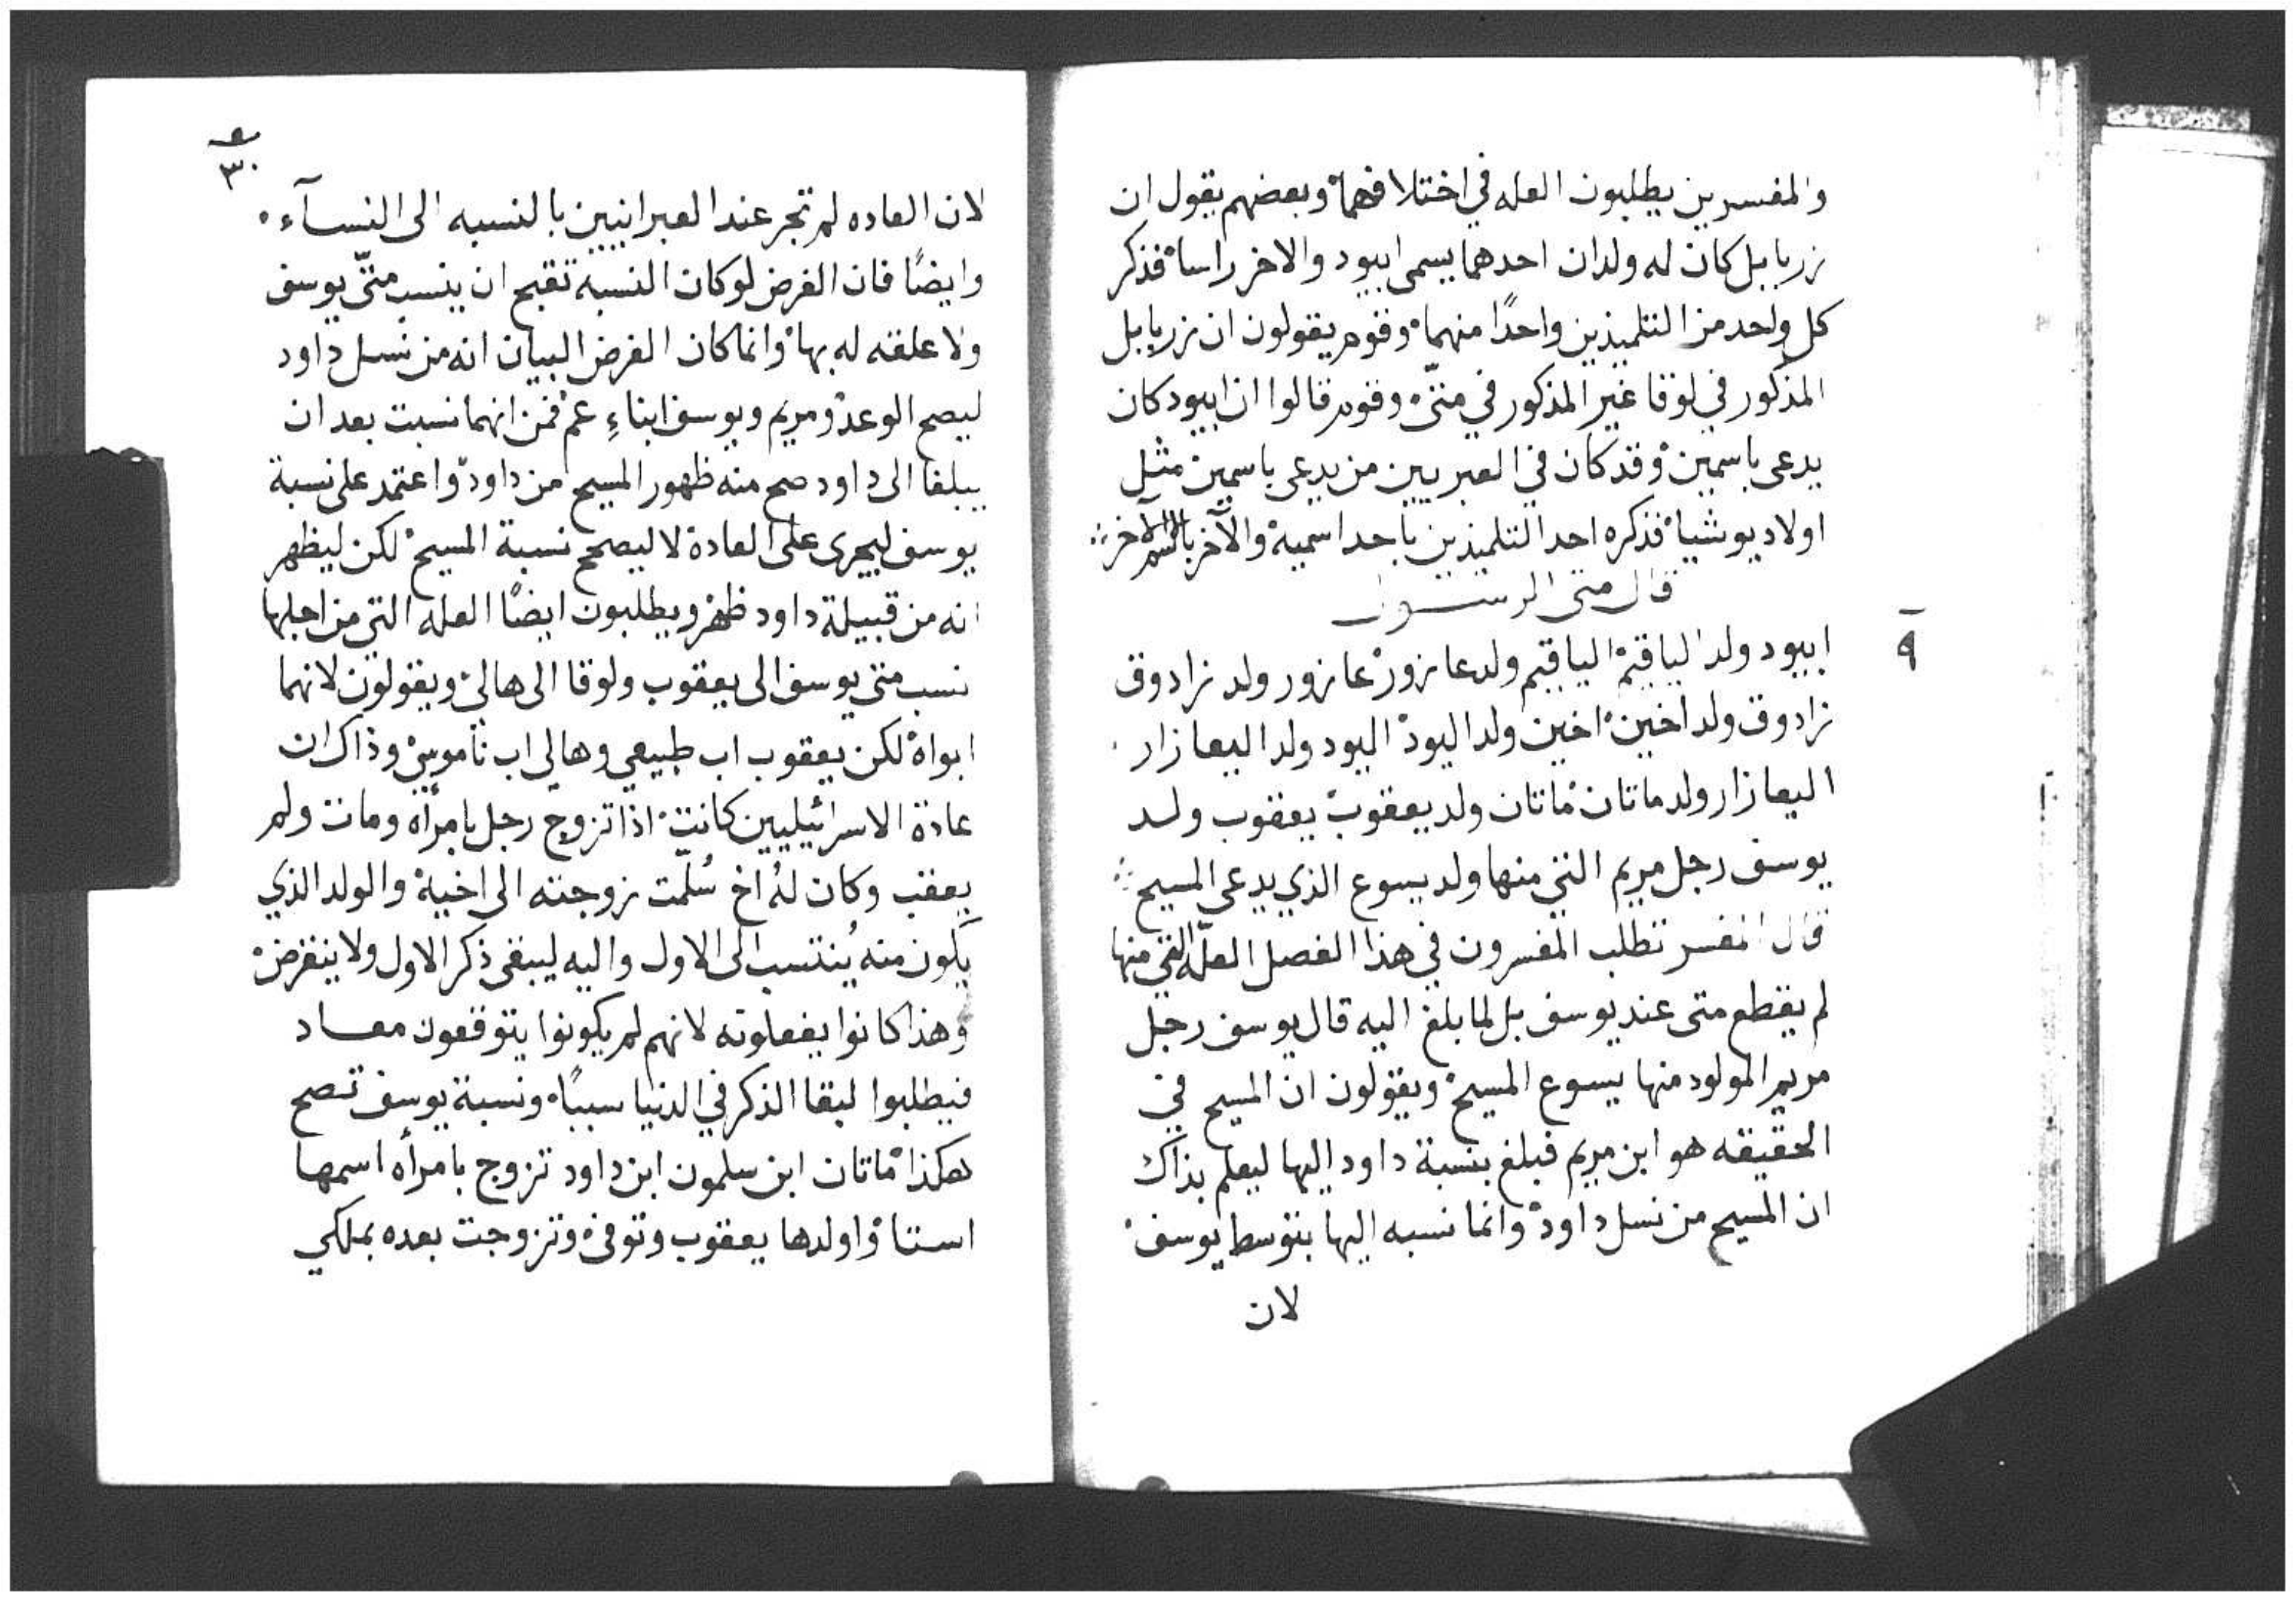 والمفسرين يطلبون العله في اختلافهما وبعضهم يقول ان
زربابل كان له ولدان احدهما يسمى ابيود والاخر راسا فذكر
كل واحد من التلميذين واحدًا منهما وقوم يقولون ان زربابل
المذكور في لوقا غير المذكور في متىّ وقوم قالوا ان ابيود كان
يدعى باسمين وقد كان في العبريين من يدعى باسمين مثل
اولاد يوشيا فذكره احد التلميذين باحد اسميه والآخر بالاسم الآخر
قال متى الرسول
٩
ابيود ولد الياقيم الياقيم ولد عازور عازور ولد زادوق
زادوق ولد اخين اخين ولد اليود اليود ولد اليعازار
اليعازار ولد ماتان ماتان ولد يعقوب يعقوب ولد
يوسف رجل مريم التي منها ولد يسوع الذي يدعى المسيح
قال المفسر تطلب المفسرون في هذا الفصل العلّه التي منها
لم يقطع متى عند يوسف بل لما بلغ اليه قال يوسف رجل
مريم المولود منها يسوع المسيح ويقولون ان المسيح في
الحقيقه هو ابن مريم فبلغ بنسبة داود اليها ليعلم بذاك
ان المسيح من نسل داود وانما نسبه اليها بتوسط يوسف
لان
٣٠
لان العاده لم تجر عند العبرانيين بالنسبه الى النسآء
وايضًا فان الغرض لو كان النسبه تقبح ان ينسب متىّ يوسف
ولا علقه له بها وانما كان الغرض البيان انه من نسل داود
ليصح الوعد ومريم ويوسف ابناءِ عم فمن انهما نسبت بعد ان
يبلغا الى داود صح منه ظهور المسيح من داود واعتمد على نسبة
يوسف ليجرى على العادة لا ليصحح نسبة المسيح لكن ليظهر
انه من قبيلة داود ظهر ويطلبون ايضًا العله التي من اجلها
نسب متى يوسف الى يعقوب ولوقا الى هالي ويقولون لانهما
ابواه لكن يعقوب اب طبيعي وهالي اب ناموسي وذاك ان
عادة الاسرائيليين كانت اذا تزوج رجل بامرأه ومات ولم
يعقب وكان لهُ اخ سُلّمت زوجته الى اخيه والولد الذي
يكون منه يُنتسب الى الاول واليه ليبقى ذكر الاول ولا ينقرض
وهذا كانوا يفعلونه لانهم لم يكونوا يتوقعون معاد
فيطلبوا لبقا الذكر في الدنيا سببًا ونسبة يوسف تصح
هكذا ماتان ابن سلمون ابن داود تزوج بامرأه اسمها
استا واولدها يعقوب وتوفى وتزوجت بعده بملكي